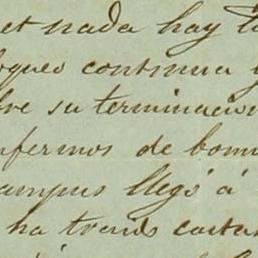 et nada hay t
oqueo continua y
bre su terminacion
nfermos de bom
ampus llegó á
ha trenis costa